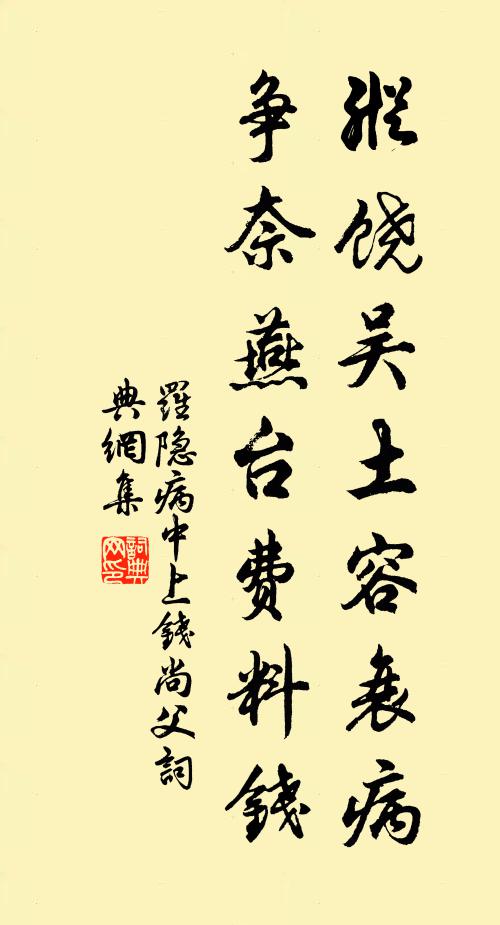 纵饶吴土容衰病
争奈燕台费料钱
羅隐病中上錢尚父詞
典網集
詞典网印